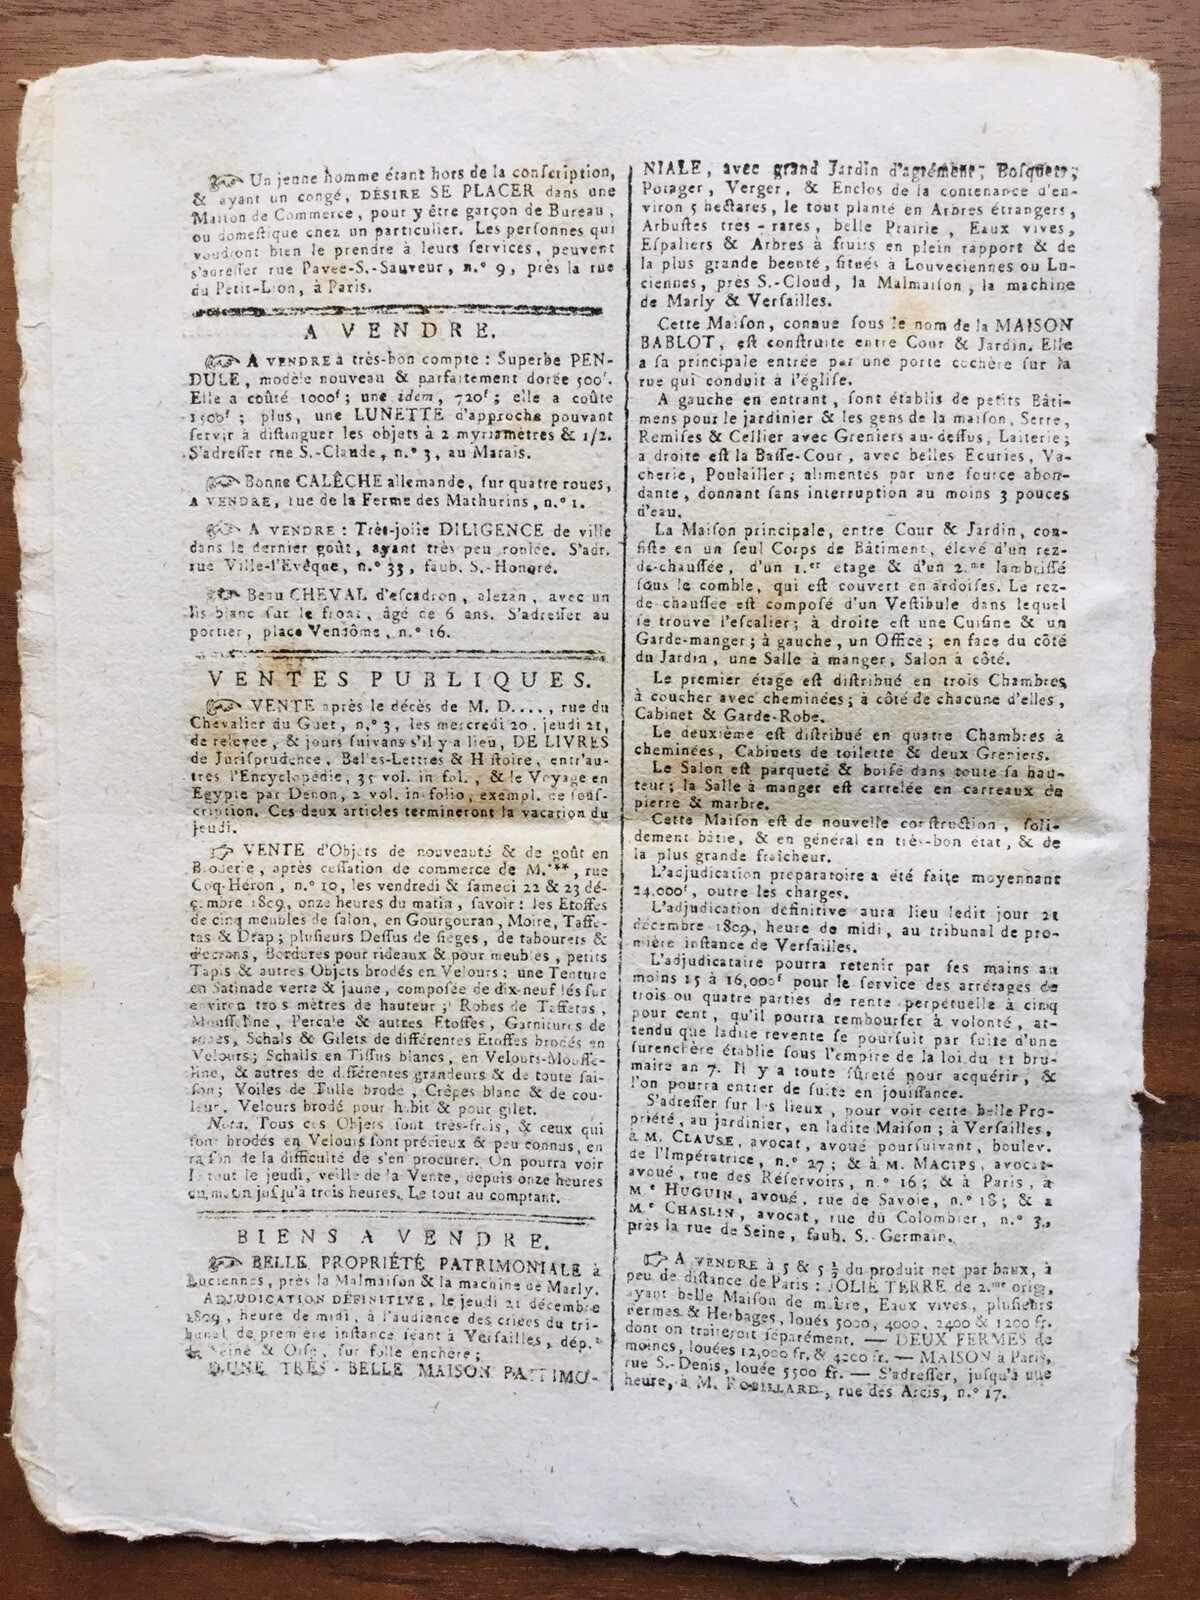 Un jeune homme étant hors de la conſcription,
& ayant un congé, DÉSIRE SE PLACER dans une
Maiſon de Commerce, pour y être garçon de Bureau,
ou domeſtique chez un particulier. Les perſonnes qui
voudront bien le prendre à leurs ſervices, peuvent
s'adreſſer rue Pavée-S.-Sauveur, n.° 9, près la rue
du Petit-Lion, à Paris.
A VENDRE.
A VENDRE à très-bon compte : Superbe PEN-
DULE, modèle nouveau & parfaitement dorée 500f.
Elle a coûté 1000f; une idem, 720f; elle a coûte
1500f; plus, une LUNETTE d'approche pouvant
ſervir à diſtinguer les objets à 2 myriamètres & 1/2.
S'adreſſer rue S.-Claude, n.° 3, au Marais.
Bonne CALÊCHE allemande, ſur quatre roues,
A VENDRE, rue de la Ferme des Mathurins, n.° 1.
A VENDRE : Très-jolie DILIGENCE de ville
dans le dernier goût, ayant très peu roulée. S'adr.
rue Ville-l'Evêque, n.° 33, faub. S.-Honoré.
Beau CHEVAL d'eſcadron, alezan, avec un
lis blanc ſur le front, âgé de 6 ans. S'adreſſer au
portier, place Vendôme, n.° 16.
VENTES PUBLIQUES.
VENTE après le décès de M. D...., rue du
Chevalier du Guet, n.° 3, les mercredi 20, jeudi 21,
de relevée, & jours ſuivans s'il y a lieu, DE LIVRES
de Juriſprudence, Belles-Lettres & Hiſtoire, entr'au-
tres l'Encyclopédie, 35 vol. in fol., & le Voyage en
Egypte par Denon, 2 vol. in-folio, exempl. de ſouſ-
cription. Ces deux articles termineront la vacation du
jeudi.
VENTE d'Objets de nouveauté & de goût en
Broderie, après ceſſation de commerce de M.***, rue
Coq-Héron, n.° 10, les vendredi & ſamedi 22 & 23 dé-
cembre 1809, onze heures du matin, ſavoir : les Etoffes
de cinq meubles de ſalon, en Gourgouran, Moire, Taffe-
tas & Drap; pluſieurs Deſſus de ſièges, de tabourets &
d'écrans, Bordures pour rideaux & pour meubles, petits
Tapis & autres Objets brodés en Velours; une Tenture
en Satinade verte & jaune, compoſée de dix-neuf lés ſur
environ trois mètres de hauteur; Robes de Taffetas,
Mouſſeline, Percale & autres Etoffes, Garnitures de
Schals & Gilets de différentes Etoffes brodés en
Velours; Schalls en Tiſſus blancs, en Velours-Mouſſe-
line, & autres de différentes grandeurs & de toute ſai-
ſon; Voiles de Tulle brodé, Crêpes blanc & de cou-
leur, Velours brodé pour habit & pour gilet.
Nota. Tous ces Objets ſont très-frais, & ceux qui
ſont brodés en Velours ſont précieux & peu connus, en
raiſon de la difficulté de s'en procurer. On pourra voir
le tout le jeudi, veille de la Vente, depuis onze heures
du matin juſqu'à trois heures. Le tout au comptant.
BIENS A VENDRE.
BELLE PROPRIÉTÉ PATRIMONIALE à
Luciennes, près la Malmaiſon & la machine de Marly.
ADJUDICATION DÉFINITIVE, le jeudi 21 décembre
1809, heure de midi, à l'audience des criées du tri-
bunal de première inſtance ſéant à Verſailles, dép.t
de Seine & Oiſe, ſur folle enchère;
D'UNE TRÈS-BELLE MAISON PATRIMO-
NIALE, avec grand Jardin d'agrément; Boſquets;
Potager, Verger, & Enclos de la contenance d'en-
viron 5 hectares, le tout planté en Arbres étrangers,
Arbuſtes tres-rares, belle Prairie, Eaux vives,
Eſpaliers & Arbres à fruits en plein rapport & de
la plus grande beenté, ſitués à Louveciennes ou Lu-
ciennes, près S.-Cloud, la Malmaiſon, la machine
de Marly & Verſailles.
Cette Maiſon, connue ſous le nom de la MAISON
BABLOT, eſt conſtruite entre Cour & Jardin. Elle
a ſa principale entrée par une porte cochère ſur la
rue qui conduit à l'égliſe.
A gauche en entrant, ſont établis de petits Bâti-
mens pour le jardinier & les gens de la maiſon, Serre,
Remiſes & Cellier avec Greniers au-deſſus, Laiterie;
a droite eſt la Baſſe-Cour, avec belles Ecuries, Va-
cherie, Poulailler; alimentés par une ſource abon-
dante, donnant ſans interruption au moins 3 pouces
d'eau.
La Maiſon principale, entre Cour & Jardin, con-
ſiſte en un ſeul Corps de Bâtiment, élevé d'un rez-
de-chauſſée, d'un 1.er étage & d'un 2.me lambriſſé
ſous le comble, qui eſt couvert en ardoiſes. Le rez-
de chauſſée eſt compoſé d'un Veſtibule dans lequel
ſe trouve l'eſcalier; à droite eſt une Cuiſine & un
Garde-manger; à gauche, un Office; en face du côté
du Jardin, une Salle à manger, Salon à côté.
Le premier étage eſt diſtribué en trois Chambres
à coucher avec cheminées; à côté de chacune d'elles,
Cabinet & Garde-Robe.
Le deuxième eſt diſtribué en quatre Chambres à
cheminées, Cabinets de toilette & deux Greniers.
Le Salon eſt parqueté & boiſé dans toute ſa hau-
teur; la Salle à manger eſt carrelée en carreaux de
pierre & marbre.
Cette Maiſon eſt de nouvelle conſtruction, ſoli-
dement bâtie, & en général en très-bon état, & de
la plus grande fraîcheur.
L'adjudication préparatoire a été faite moyennant
24,000f, outre les charges.
L'adjudication définitive aura lieu ledit jour 21
décembre 1809, heure de midi, au tribunal de pre-
mière inſtance de Verſailles.
L'adjudicataire pourra retenir par ſes mains au
moins 15 à 16,000f pour le ſervice des arrérages de
trois ou quatre parties de rente perpétuelle à cinq
pour cent, qu'il pourra rembourſer à volonté, at-
tendu que ladite revente ſe pourſuit par ſuite d'une
ſurenchère établie ſous l'empire de la loi du 11 bru-
maire an 7. Il y a toute ſûreté pour acquérir, &
l'on pourra entrer de ſuite en jouiſſance.
S'adreſſer ſur les lieux, pour voir cette belle Pro-
priété, au jardinier, en ladite Maiſon; à Verſailles,
à M. CLAUSE, avocat, avoué pourſuivant, boulev.
de l'Impératrice, n.° 27; & à M. MACIPS, avocat-
avoué, rue des Réſervoirs, n.° 16; & à Paris, à
M.e HUGUIN, avoué, rue de Savoie, n.° 18; & a
M.e CHASLIN, avocat, rue du Colombier, n.° 3,
près la rue de Seine, faub. S.-Germain.
A VENDRE à 5 & 5 ½ du produit net par baux, à
peu de diſtance de Paris : JOLIE TERRE de 2.me orig.
ayant belle Maiſon de maître, Eaux vives, pluſieurs
Fermes & Herbages, loués 5000, 4000, 2400 & 1200 fr.
dont on traiteroit ſéparément. — DEUX FERMES de
moines, louées 12,000 fr. & 4200 fr. — MAISON à Paris,
rue S.-Denis, louée 5500 fr. — S'adreſſer, juſqu'à une
heure, à M. ROBILLARD, rue des Arcis, n.° 17.